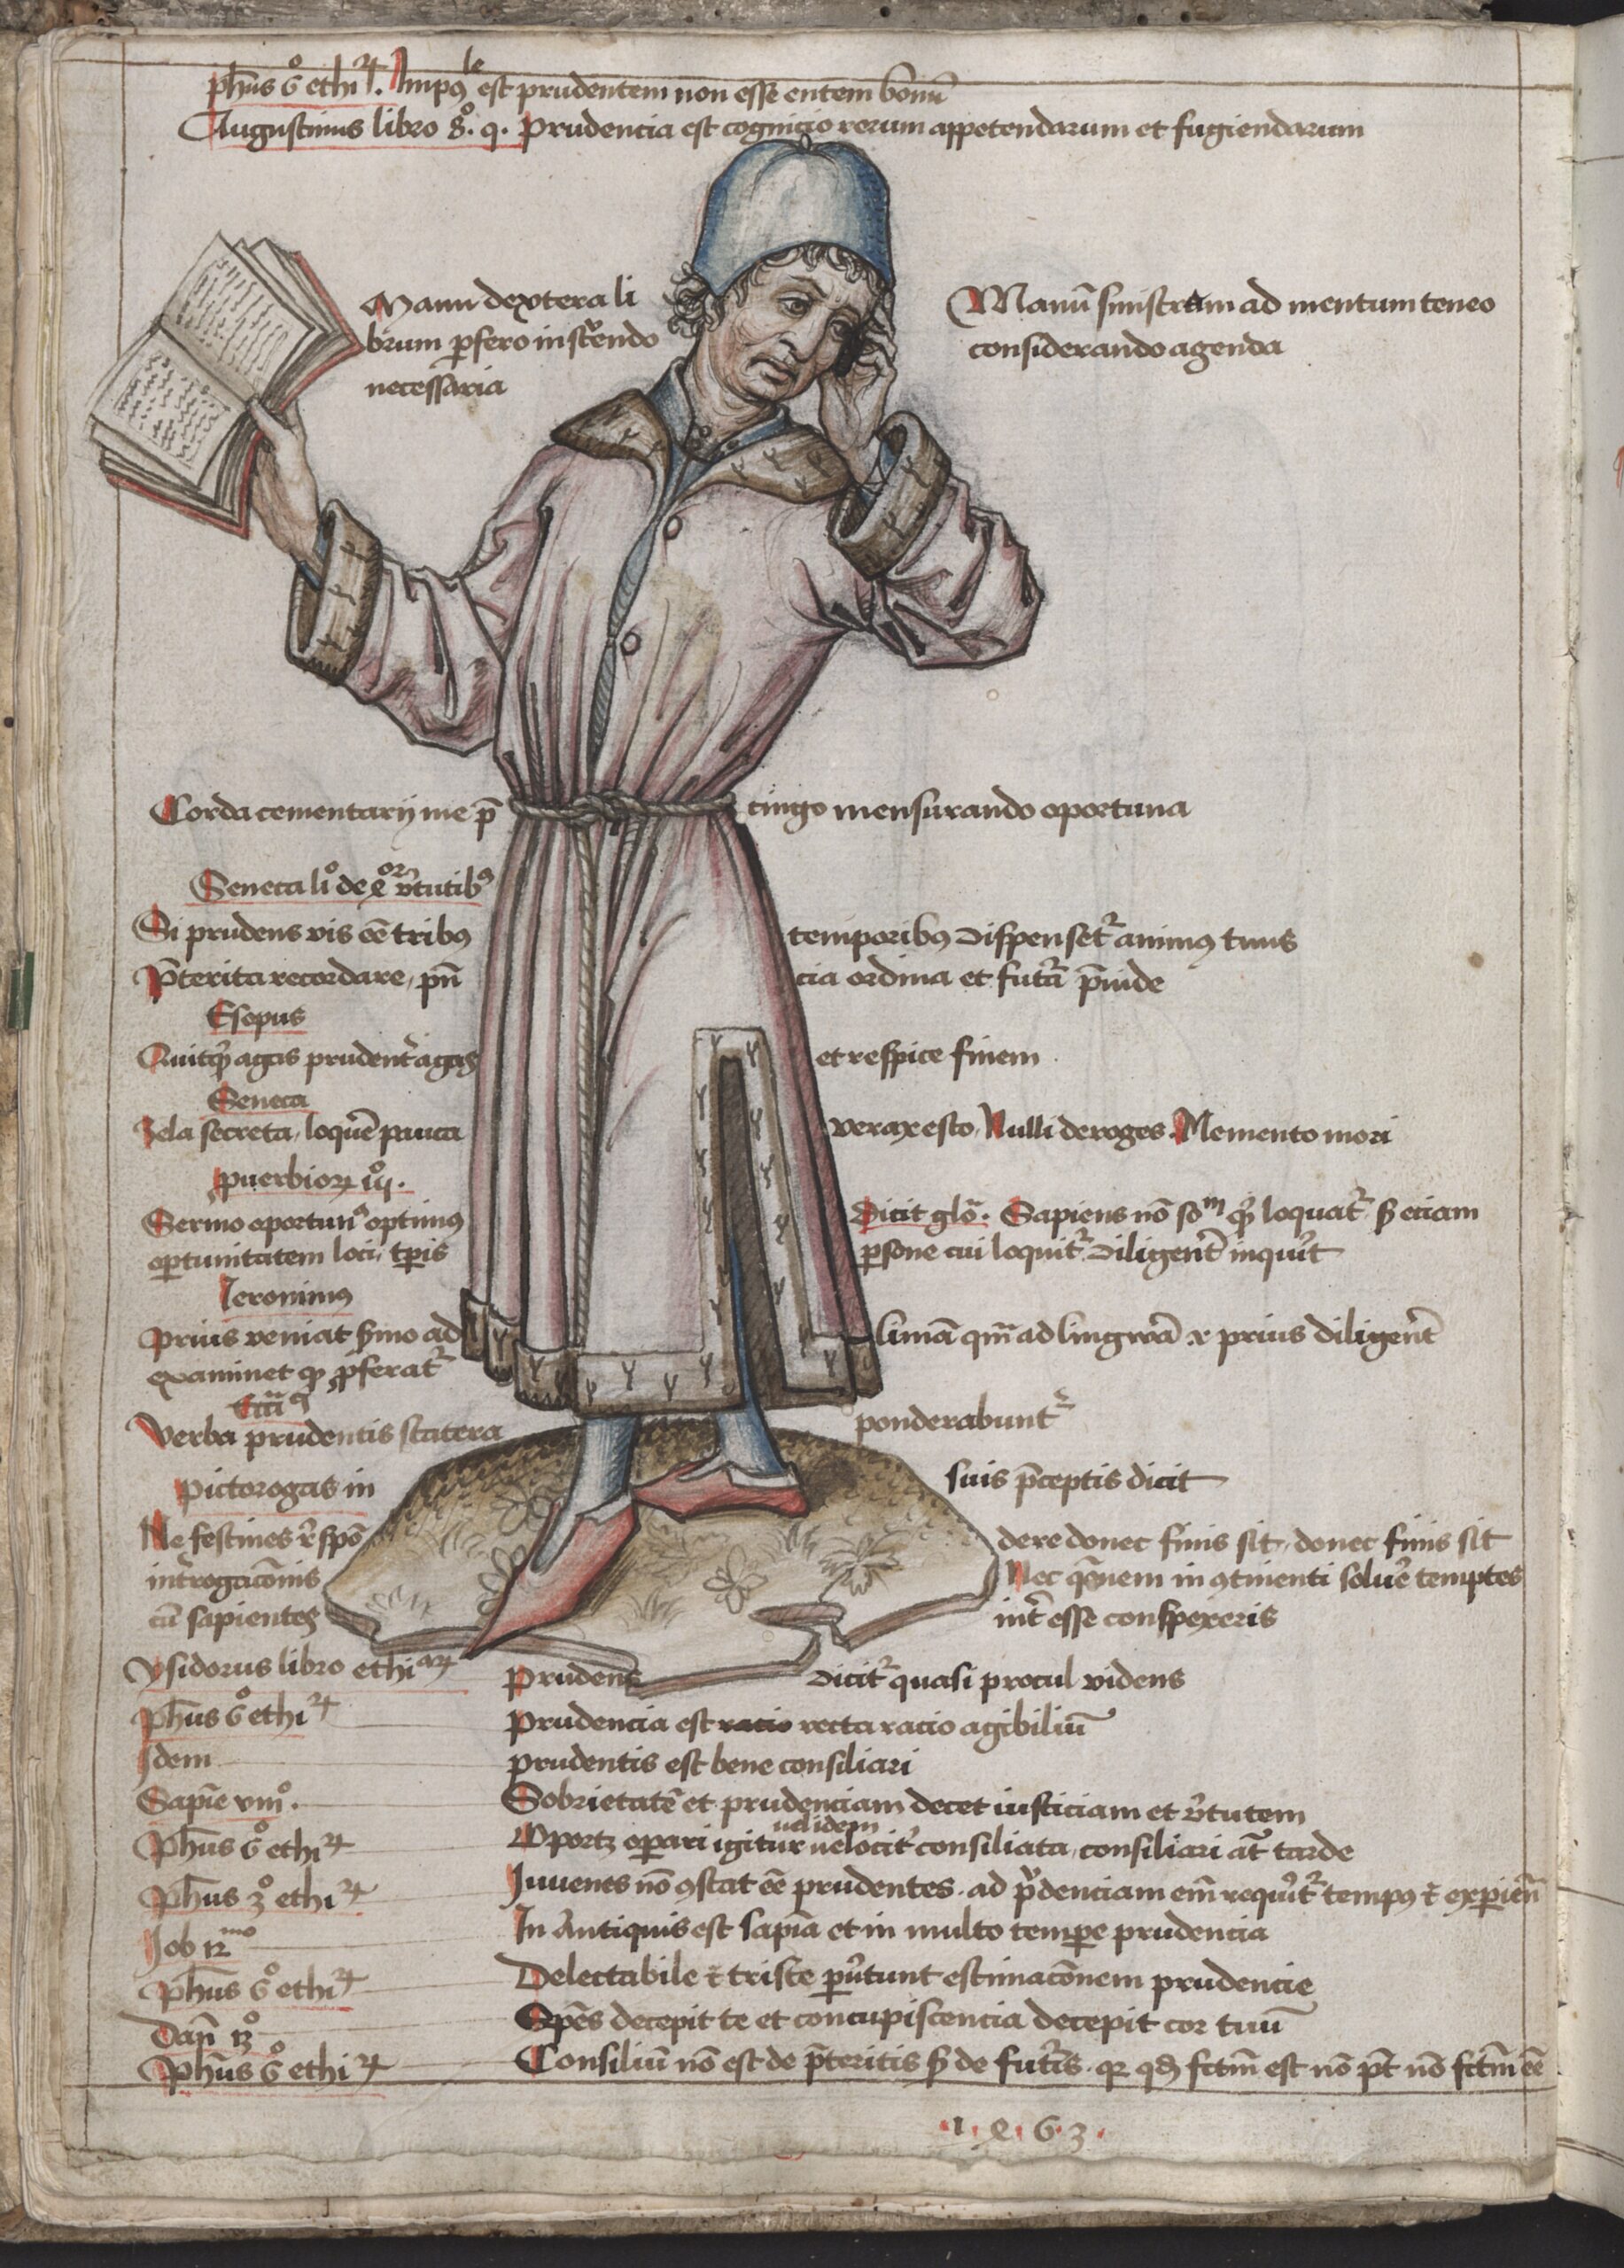 ph̄us 6° ethi⁊. Impo⁹le est prudentem non esse entem bonū
Augustinus libro 8°. q. Prudencia est cognicio rerum appetendarum et fugiendarum
Manu dextera li
brum ꝑfero inscͥendo
necessaria
Manū sinistram ad mentum teneo
considerando agenda
Corda cementarij me p̄ cingo mensurando oportuna
Seneca li° de 4or v̓tutib⁹
Si prudens vis eē tribus temporibus dispenset᷑ animus tuus
P̄terita recordare, pn̄ cia ordina et futᷓa p̄uide
Esopus
Quitqͥd agas prudent̓ agas et respice finem
Seneca
Zela secreta, loqūe pauca verax esto, Nulli deroges. Memento mori
ꝓuerbioꝝ iij°.
Sermo oportun⁹ optimus Dicit glō. Sapiens nō som qͥd loquat᷑ sꝫ eciam
oꝑtunitatem loci, tꝑis ꝑsone cui loquit᷑ diligent̓ inquͥrit
Ieronimus
Prius veniat ẜmo ad limā qm̄ ad lingwā ⁊ prius diligent̓
examinet qͥd ꝓferat᷑
Eccͥi
Verba prudentis statera ponderabunt᷑
Pictorogas in suis p̄ceptis dicit
Ne festines r̓spō dere donec finis sit, donec finis sit
int̓rogacōnis Nec qͣmuem in ꝯtinenti solūe temptes
cū sapientes int̓esse conspexeris
Ysidorus libro ethiarꝝ Prudens dicit᷑ quasi procul videns
Ph̄us 6° ethi⁊ Prudencia est racio recta racio agibiliū
Idem prudentis est bene consiliari
Sapiē viii°. Sobrietatē et prudenciam docet iusticiam et v̓tutem
uel idem
Ph̄us 6° ethi⁊ Oportꝫ oꝑari igitur velocit̓ consiliata, consiliari aūt tarde
Ph̄us 3° ethi⁊ Iuuenes nō ꝯstat eē prudentes. ad pͥdenciam em̄ requͥrit᷑ tempus ⁊ exꝑien̄
Iob 12mo In Antiquis est sapīa et in multo tempe prudencia
Ph̄us 6° ethi⁊ Delectabile ⁊ triste ꝑu̓tunt estimacōnem prudencie
Dan̄ 13° Spēs decepit te et concupiscencia decepit cor tuū
Ph̄us 6° ethi⁊ Consiliū nō est de p̄teritis sꝫ de futᷓis. qꝛ qđ fctm̄ est nō pt̄ nō fctm̄ eē
.1.4.6.3.